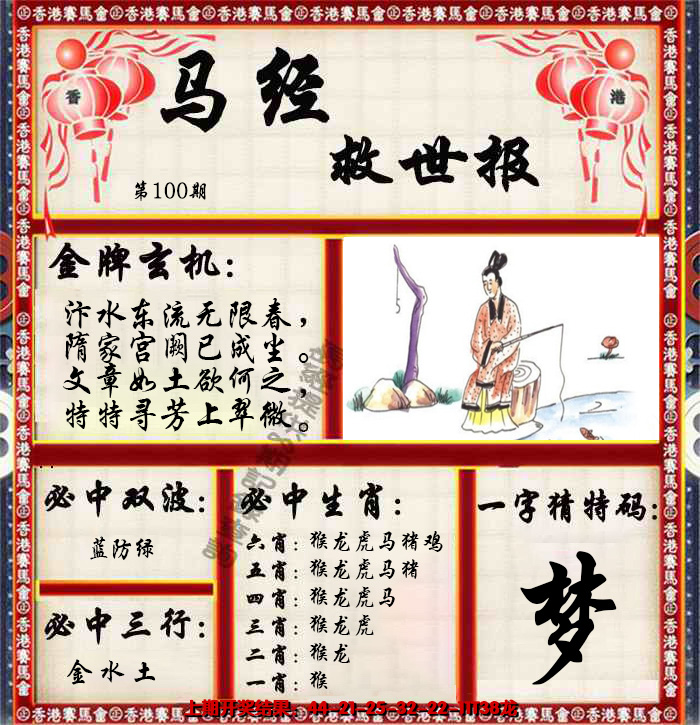 香港賽馬會
香
港
马经
救世报
第100期
金牌玄机:
汴水东流无限春,
隋家宫阙已成尘。
文章如土欲何之,
特特寻芳上翠微。
必中双波:
蓝防绿
必中三行:
金水土
必中生肖:
六肖:猴龙虎马猪鸡
五肖:猴龙虎马猪
四肖:猴龙虎马
三肖:猴龙虎
二肖:猴龙
一肖:猴
一字猜特码:
梦
上期开奖结果:44-21-25-32-22-11T38龙